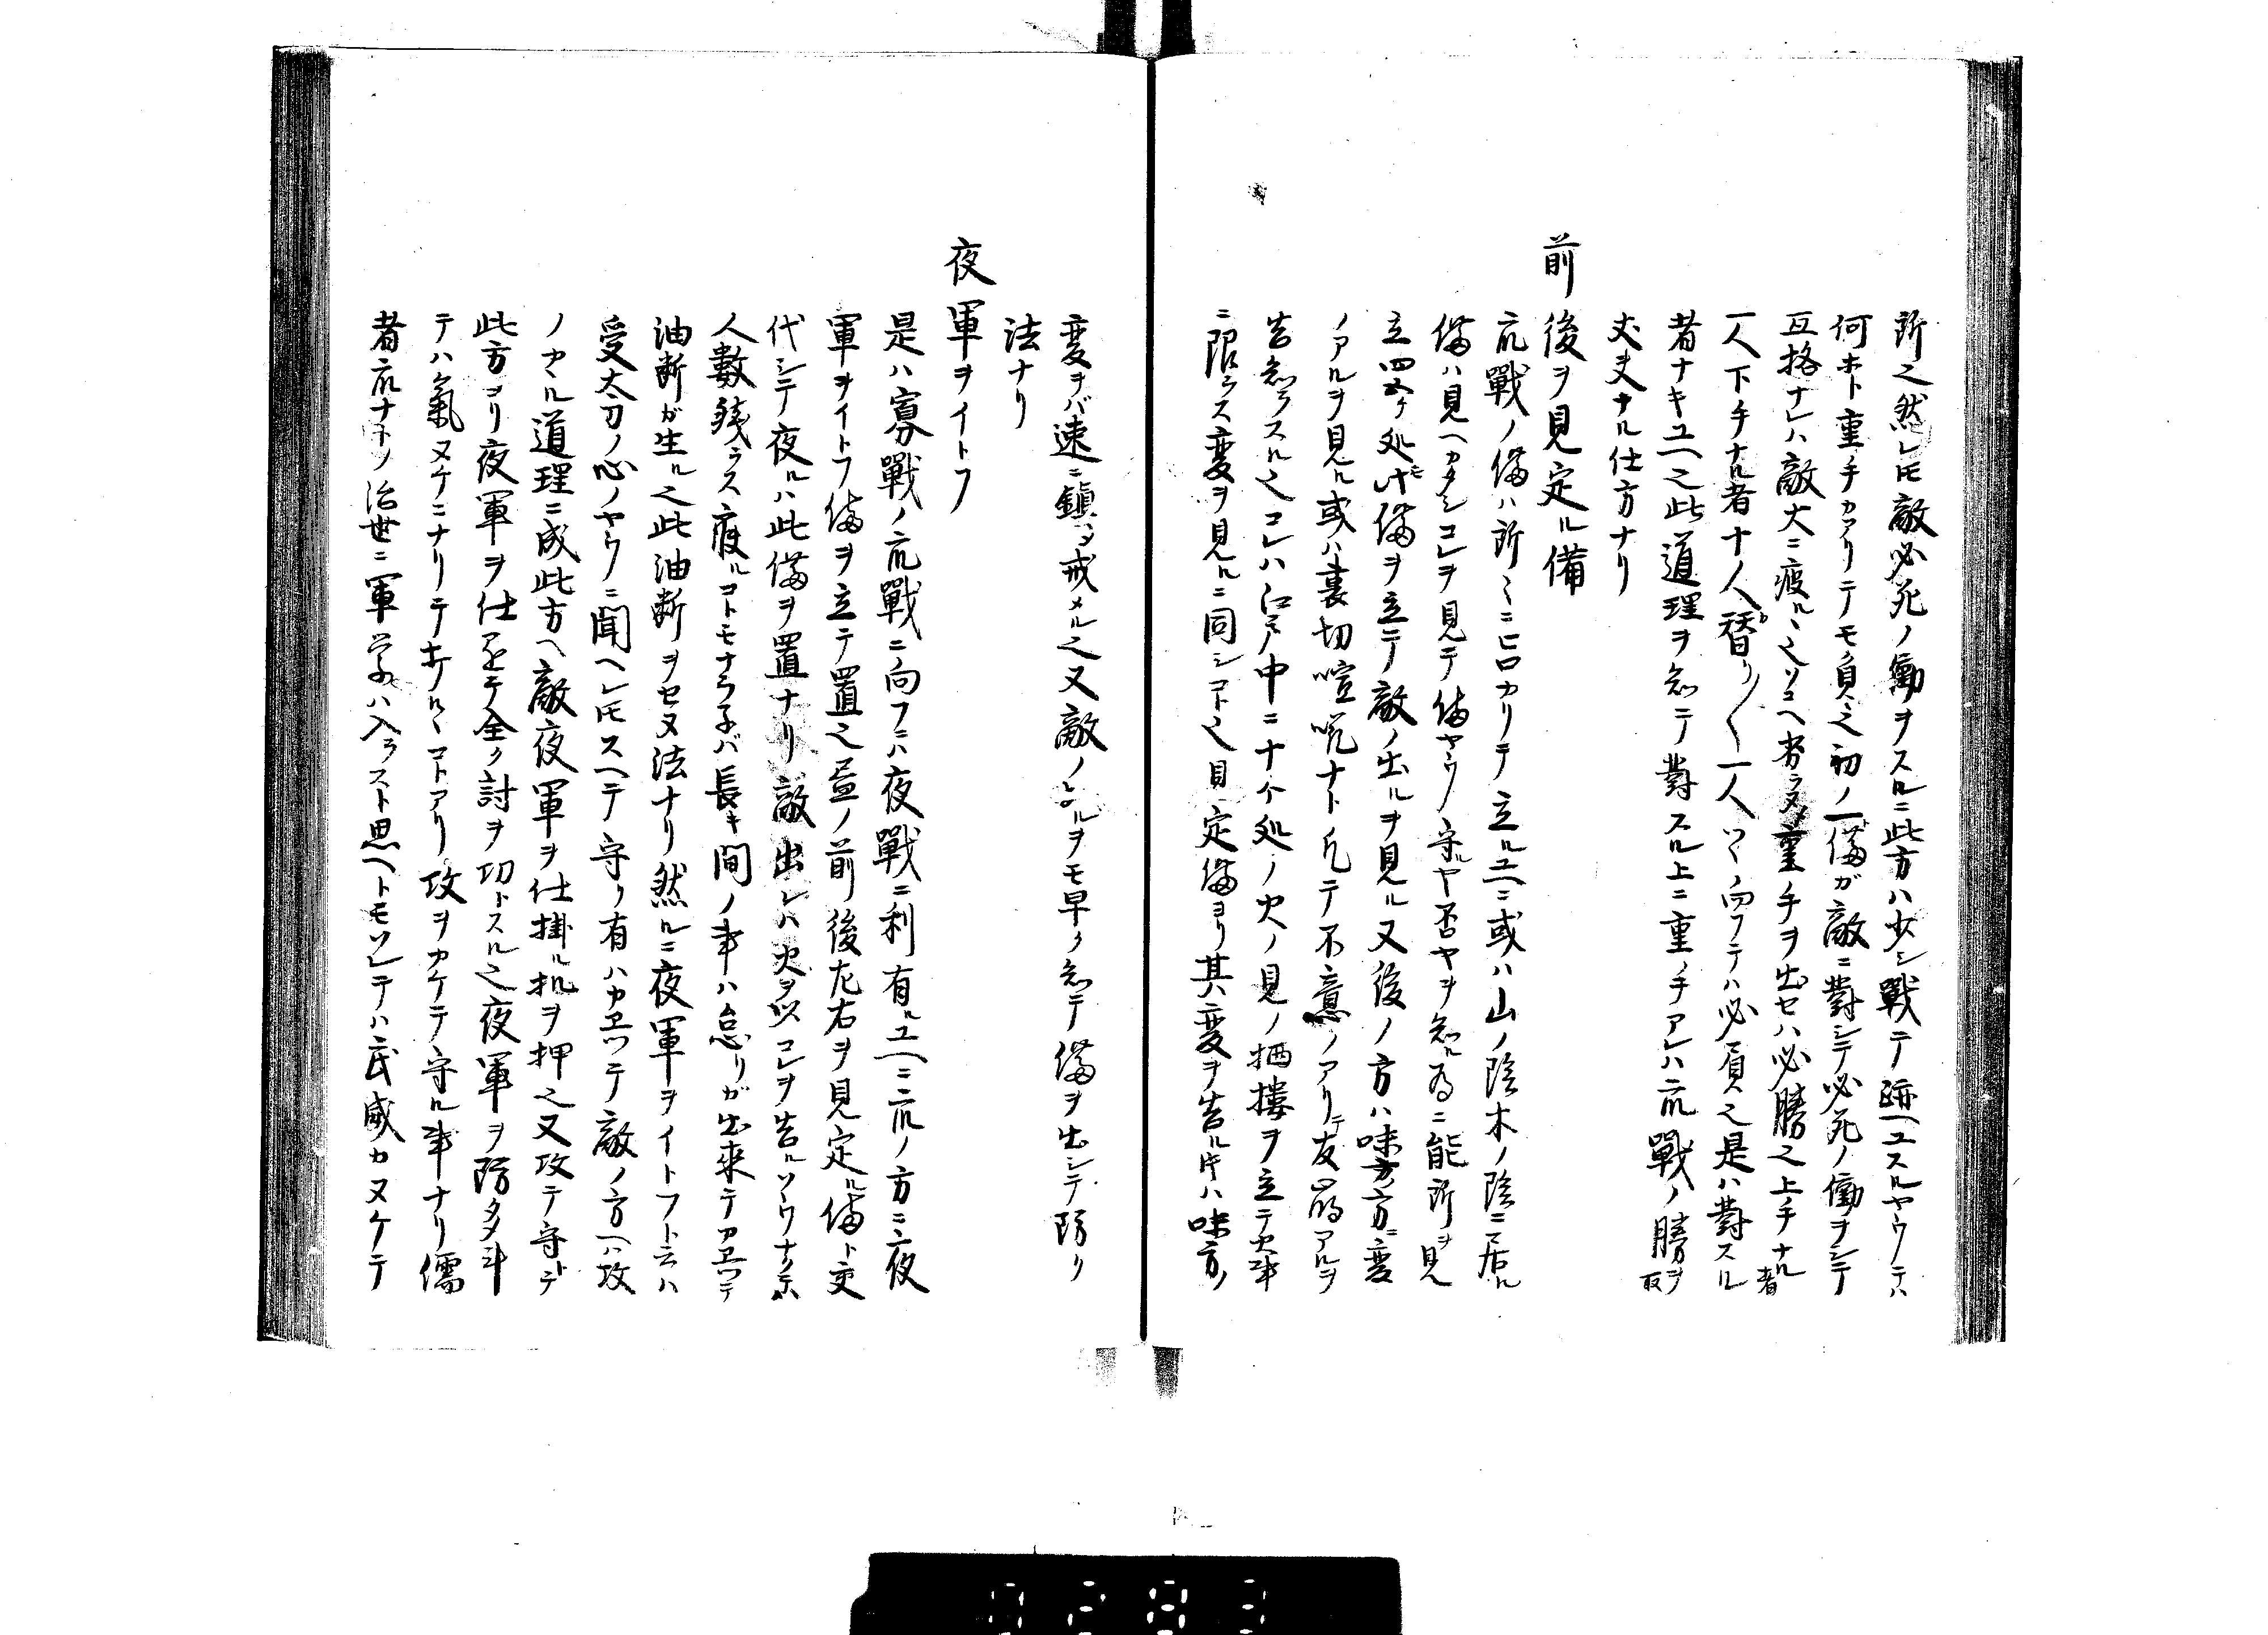 所之然レ𪜈敵必死ノ働ヲスルニ此方ハ少シ戰テ跡ヘユスルヤウノテハ
何ホト重手カアリテモ負之初ノ一備ガ敵ニ對シテ必死ノ働ヲシテ
互格ナレハ敵大ニ疲ルヽ之ソコヘ労ラヌ重手ヲ出セハ必勝之上手ナル者
一人下手ナル者十人替リ〳〵一人ツヽ向フテハ必負之是ハ對スル
者ナキユヘ之此道理ヲ知テ對スル上ニ重手アレハ亢戰ノ勝ヲ取
丈夫ナル仕方ナリ
前後ヲ見定ル備
亢戰ノ備ハ所々ニヒロカリテ立ルユヘニ或ハ山ノ陰木ノ陰ニ居ル
備ハ見ヘカタシコレヲ見テ備ヤウノ守ルヤ否ヤヲ知ル為ニ能所ヲ見
立四五ケ処ニモ備ヲ立テ敵ノ出ルヲ見ル又後ノ方ハ味方ニ変
ノアルヲ見ル或ハ裏切喧𠵅ナト凡テ不意ノアリテ友崩アルヲ
告知ラスル之コレハ江戸ノ中ニ十ケ処ノ火ノ見ノ栖樓ヲ立テ火事
ニ限ラス変ヲ見ルニ同シコト之見定備ヨリ其変ヲ告ル時ハ味方ノ
変ヲバ速ニ鎭メ戒メル之又敵ノ出ルヲモ早ク知テ備ヲ出シテ防ク
法ナリ
夜軍ヲイトフ
是ハ寡戰ノ亢戰ニ向フニハ夜戰ニ利有ルユヘニ亢ノ方ニ夜
軍ヲイトフ備ヲ立テ置之昼ノ前後左右ヲ見定ル備ト交
代シテ夜ルハ此備ヲ置ナリ敵出レハ火ヲ以コレヲ告ルソウナケ
人數残ラス寐ルコトモナラ子バ長キ間ノ事ハ怠リガ出来テカヱツテ
油断ガ生ル之此油断ヲセヌ法ナリ然ルニ夜軍ヲイトフト云ハ
受太刀ノ心ノヤウニ聞ヘレ𪜈スヘテ守リ有ハカヱツテ敵ノ方ヘハ攻
ノカヽル道理ニ成此方ヘ敵夜軍ヲ仕掛ル机ヲ押之又攻テ守トテ
此方ヨリ夜軍ヲ仕全ク討ヲ切トスル之夜軍ヲ防クタメ斗
テハ氣ヌケニナリテキルヽコトアリ攻ヲカケテ守ル事ナリ儒
者亢ナトノ治世ニ軍学ハ入ラスト思ヘトモソレテハ武威カヌケテ